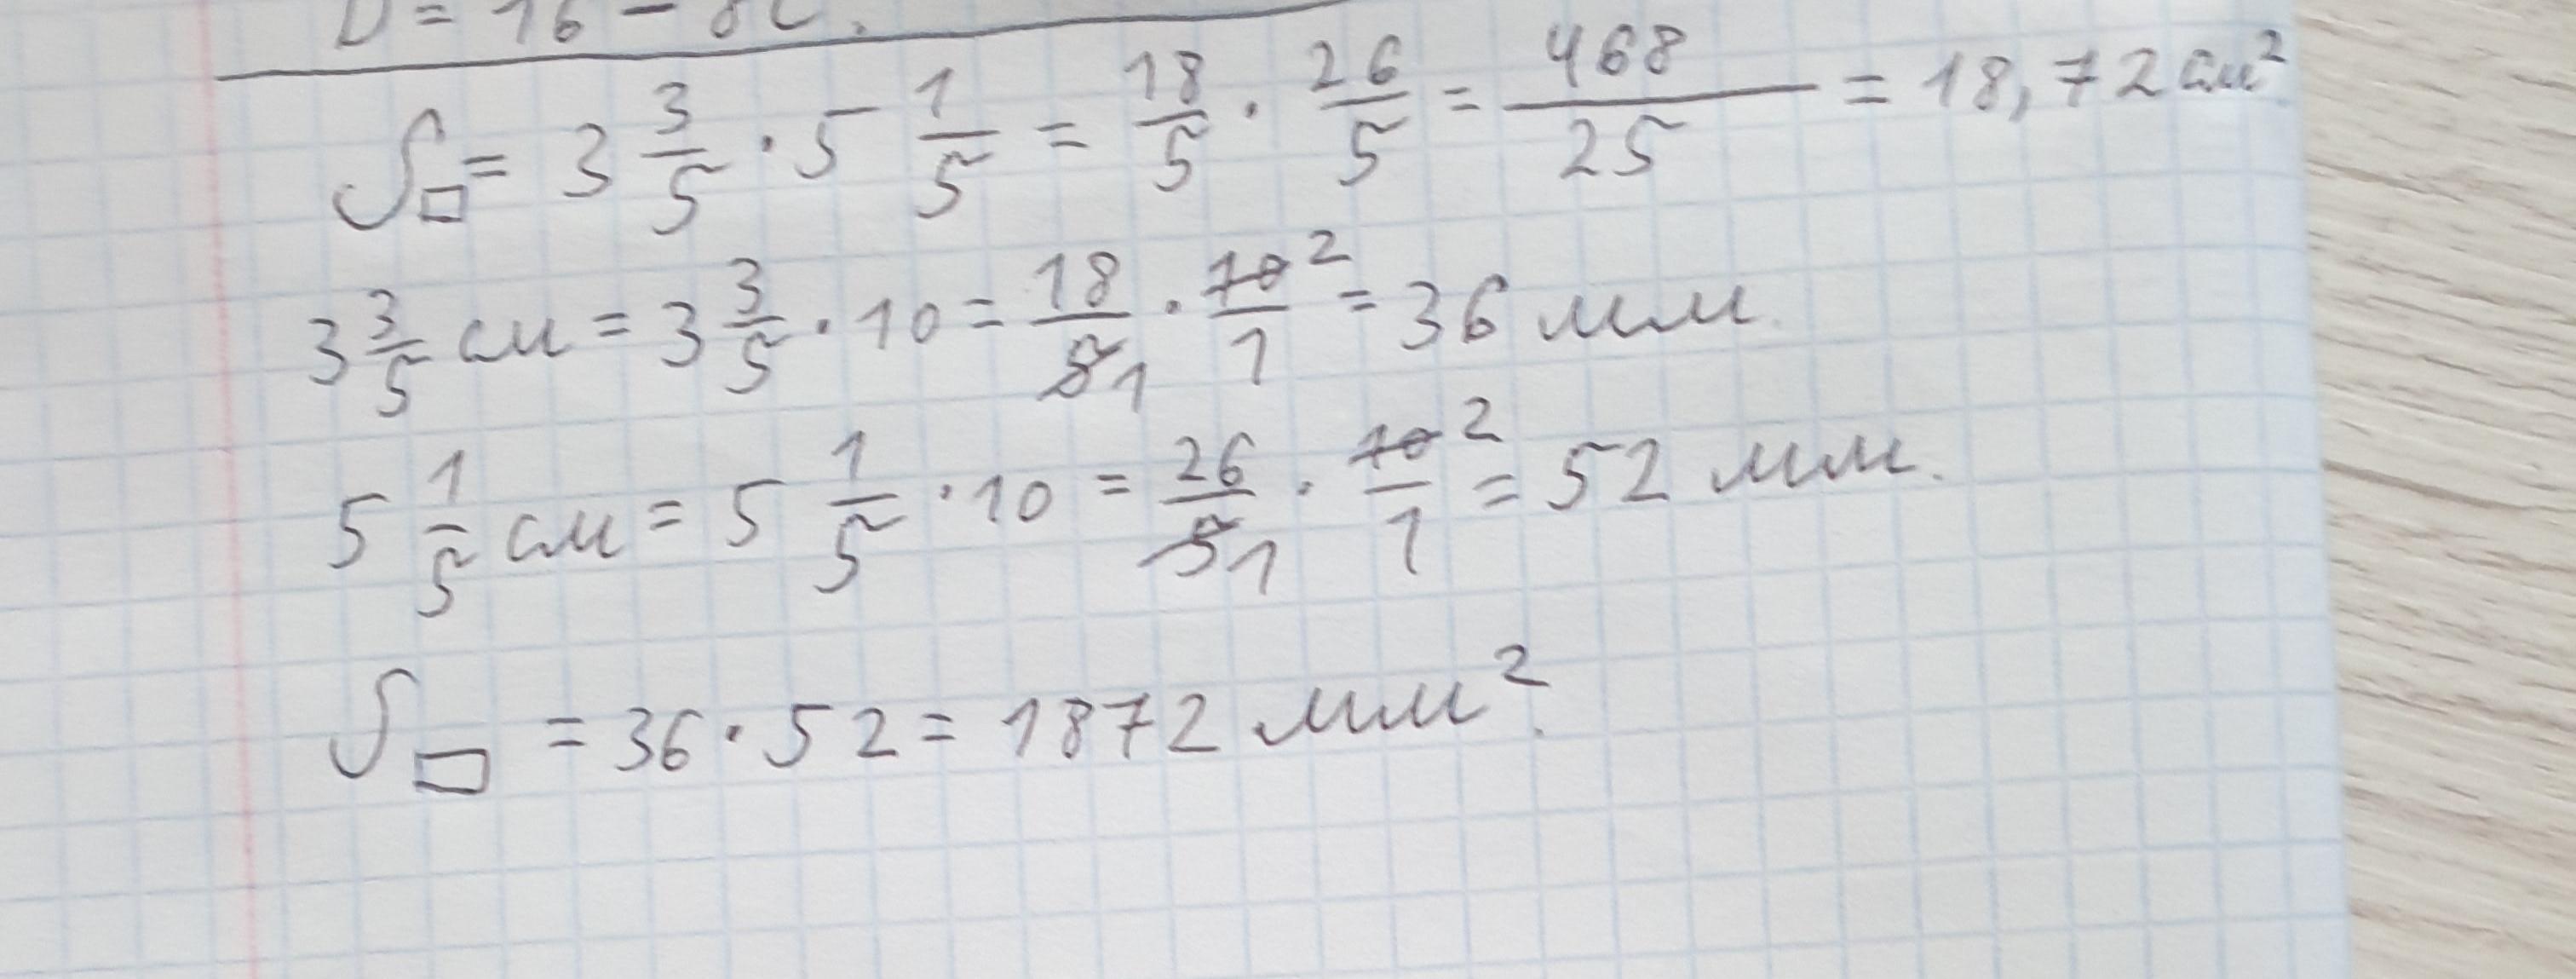 D = 16 - 8c.
S□ = 3 3/5 · 5 1/5 = 18/5 · 26/5 = 468/25 = 18,72 см²
3 3/5 см = 3 3/5 · 10 = 18/5 1 · 10 2/1 = 36 мм.
5 1/5 см = 5 1/5 · 10 = 26/5 1 · 10 2/1 = 52 мм.
S□ = 36 · 52 = 1872 мм².